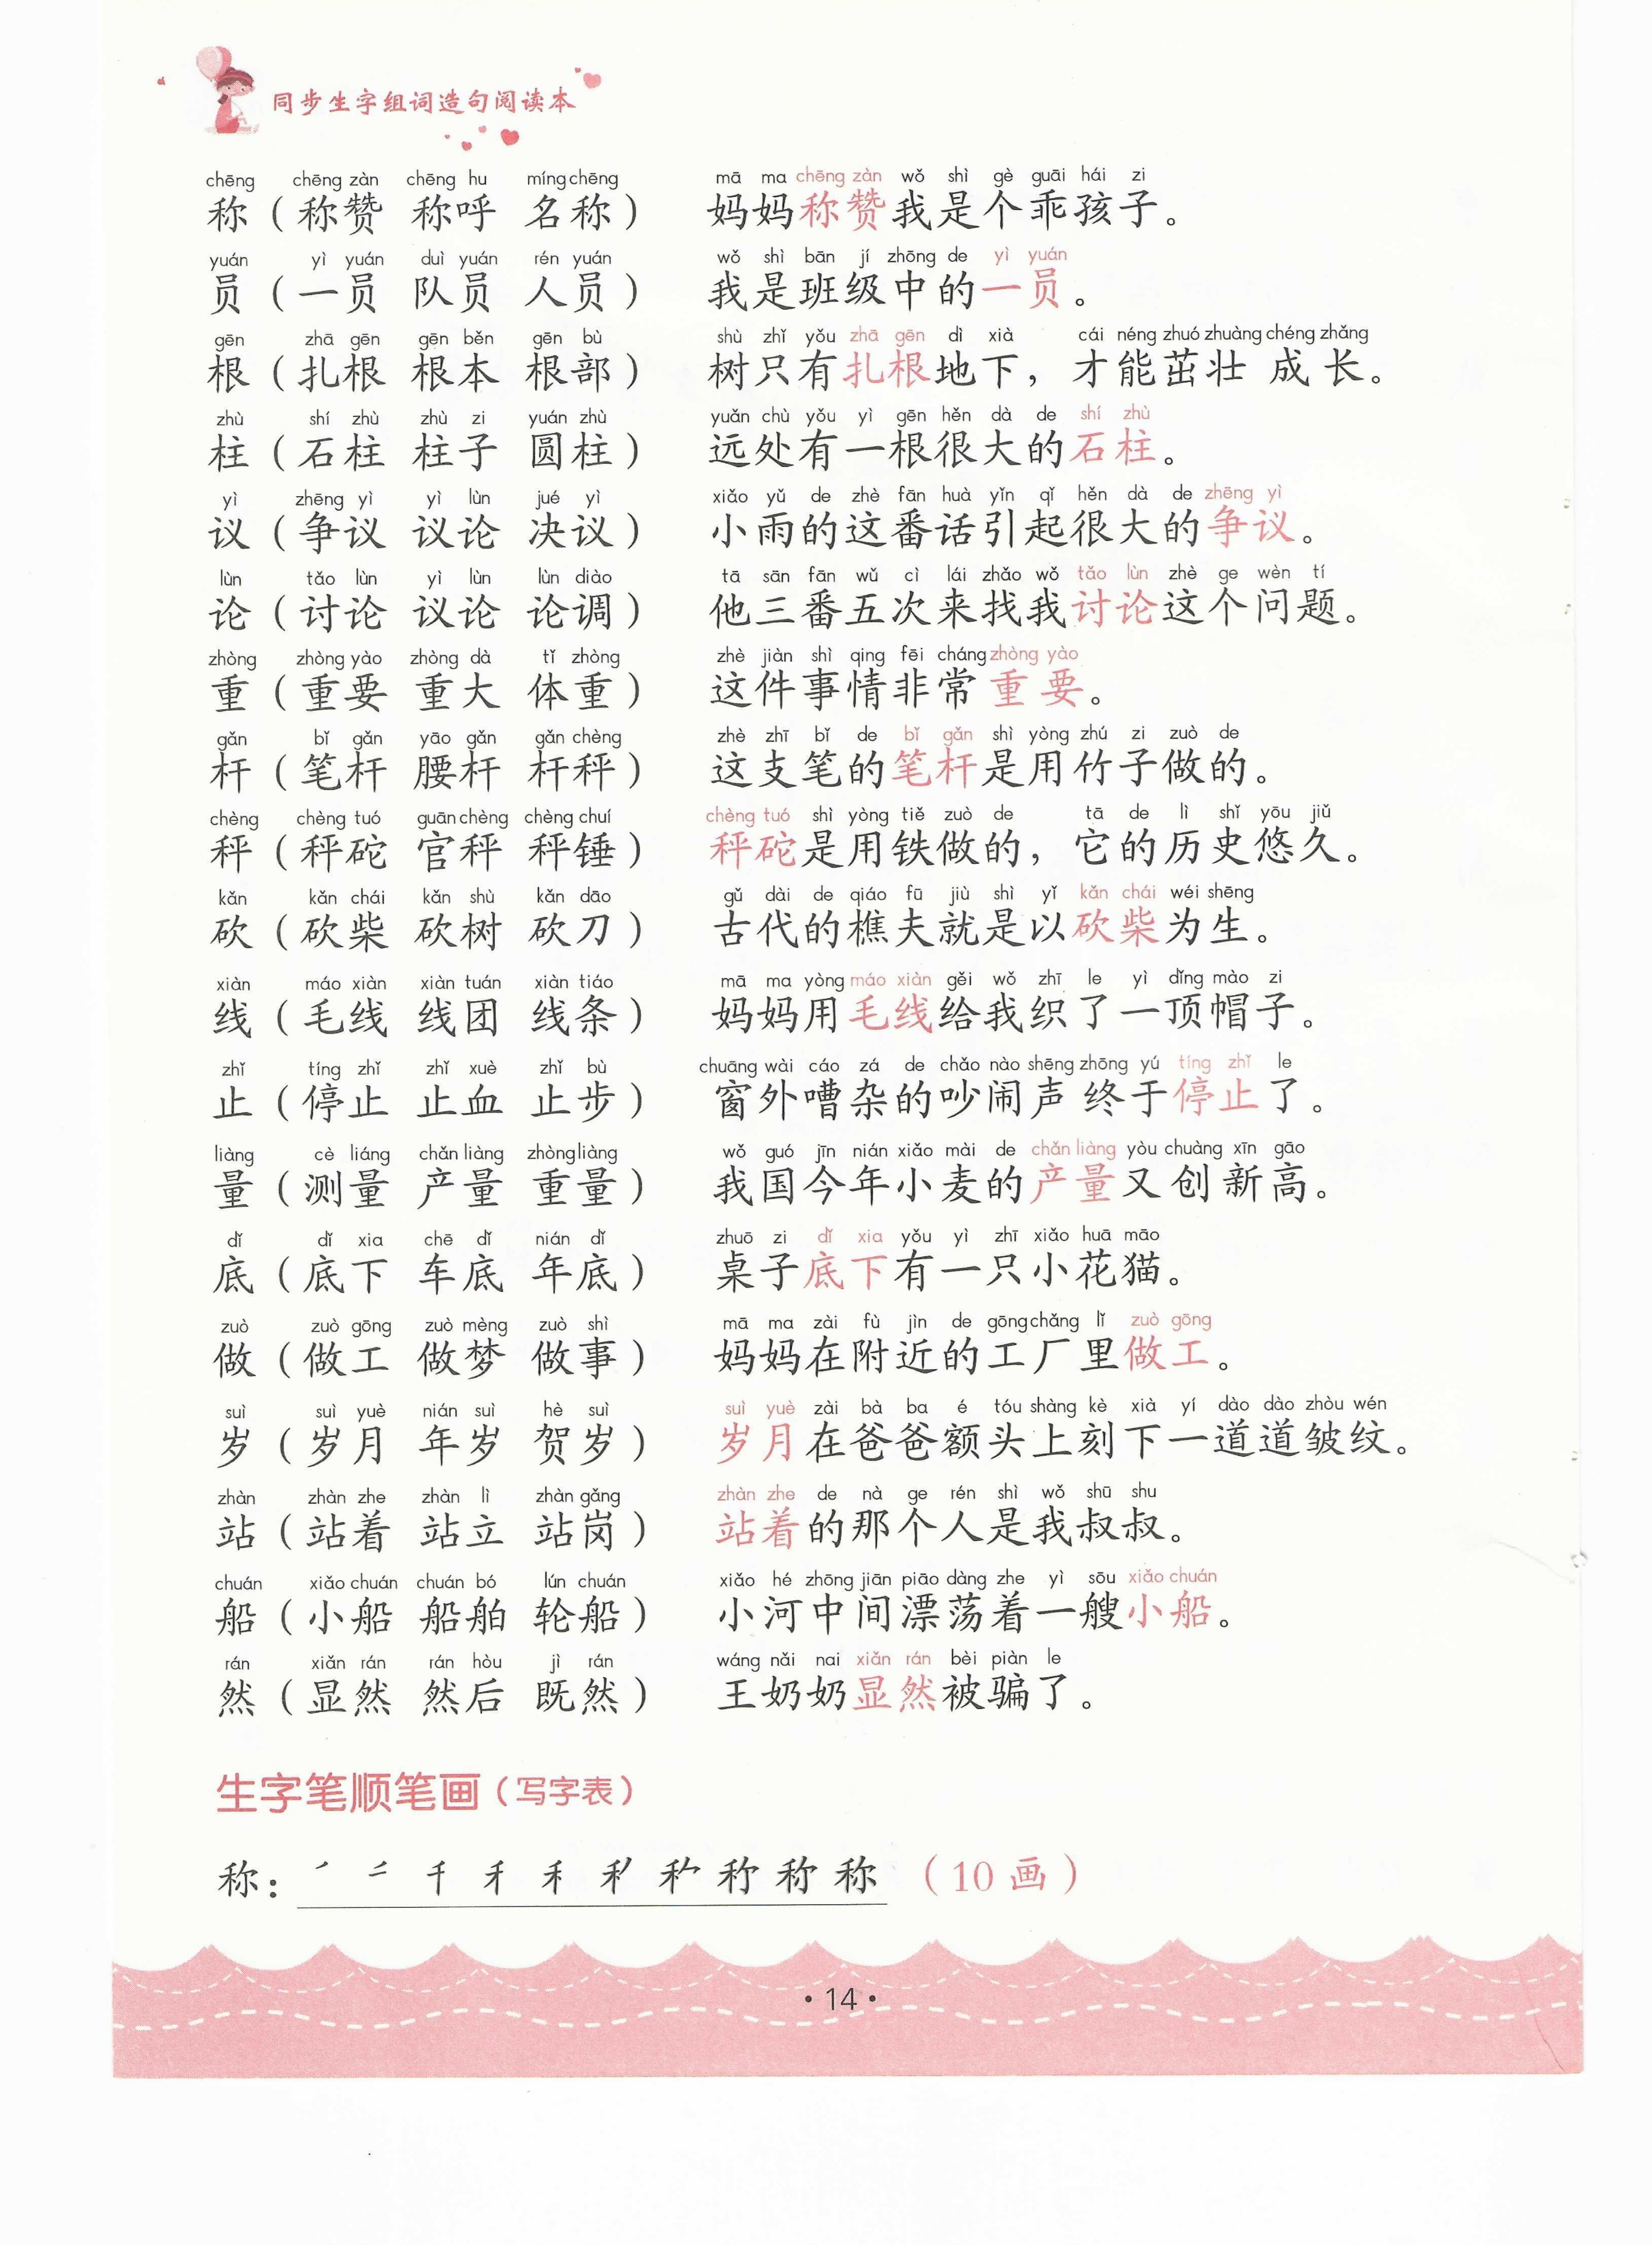 同步生字组词造句阅读本
chēng chēng zàn chēng hu míng chēng mā ma chēng zàn wǒ shì gè guāi hái zi
称（称赞 称呼 名称） 妈妈称赞我是个乖孩子。
yuán yì yuán duì yuán rén yuán wǒ shì bān jí zhōng de yì yuán
员（一员 队员 人员） 我是班级中的一员。
gēn zhā gēn gēn běn gēn bù shù zhǐ yǒu zhā gēn dì xià cái néng zhuó zhuàng chéng zhǎng
根（扎根 根本 根部） 树只有扎根地下，才能茁壮成长。
zhù shí zhù zhù zi yuán zhù yuǎn chù yǒu yì gēn hěn dà de shí zhù
柱（石柱 柱子 圆柱） 远处有一根很大的石柱。
yì zhēng yì yì lùn jué yì xiǎo yǔ de zhè fān huà yǐn qǐ hěn dà de zhēng yì
议（争议 议论 决议） 小雨的这番话引起很大的争议。
lùn tǎo lùn yì lùn lùn diào tā sān fān wǔ cì lái zhǎo wǒ tǎo lùn zhè ge wèn tí
论（讨论 议论 论调） 他三番五次来找我讨论这个问题。
zhòng zhòng yào zhòng dà tǐ zhòng zhè jiàn shì qing fēi cháng zhòng yào
重（重要 重大 体重） 这件事情非常重要。
gǎn bǐ gǎn yāo gǎn gǎn chèng zhè zhī bǐ de bǐ gǎn shì yòng zhú zi zuò de
杆（笔杆 腰杆 杆秤） 这支笔的笔杆是用竹子做的。
chèng chèng tuó guān chèng chèng chuí chèng tuó shì yòng tiě zuò de tā de lì shǐ yōu jiǔ
秤（秤砣 官秤 秤锤） 秤砣是用铁做的，它的历史悠久。
kǎn kǎn chái kǎn shù kǎn dāo gǔ dài de qiáo fū jiù shì yǐ kǎn chái wéi shēng
砍（砍柴 砍树 砍刀） 古代的樵夫就是以砍柴为生。
xiàn máo xiàn xiàn tuán xiàn tiáo mā ma yòng máo xiàn gěi wǒ zhī le yì dǐng mào zi
线（毛线 线团 线条） 妈妈用毛线给我织了一顶帽子。
zhǐ tíng zhǐ zhǐ xuè zhǐ bù chuāng wài cáo zá de chǎo nào shēng zhōng yú tíng zhǐ le
止（停止 止血 止步） 窗外嘈杂的吵闹声终于停止了。
liàng cè liáng chǎn liàng zhòng liàng wǒ guó jīn nián xiǎo mài de chǎn liàng yòu chuàng xīn gāo
量（测量 产量 重量） 我国今年小麦的产量又创新高。
dǐ dǐ xia chē dǐ nián dǐ zhuō zi dǐ xia yǒu yì zhī xiǎo huā māo
底（底下 车底 年底） 桌子底下有一只小花猫。
zuò zuò gōng zuò mèng zuò shì mā ma zài fù jìn de gōng chǎng lǐ zuò gōng
做（做工 做梦 做事） 妈妈在附近的工厂里做工。
suì suì yuè nián suì hè suì suì yuè zài bà ba é tóu shàng kè xià yí dào dào zhòu wén
岁（岁月 年岁 贺岁） 岁月在爸爸额头上刻下一道道皱纹。
zhàn zhàn zhe zhàn lì zhàn gǎng zhàn zhe de nà ge rén shì wǒ shū shu
站（站着 站立 站岗） 站着的那个人是我叔叔。
chuán xiǎo chuán chuán bó lún chuán xiǎo hé zhōng jiān piāo dàng zhe yì sōu xiǎo chuán
船（小船 船舶 轮船） 小河中间漂荡着一艘小船。
rán xiǎn rán rán hòu jì rán wáng nǎi nai xiǎn rán bèi piàn le
然（显然 然后 既然） 王奶奶显然被骗了。
生字笔顺笔画（写字表）
称： 称（10画）
·14·